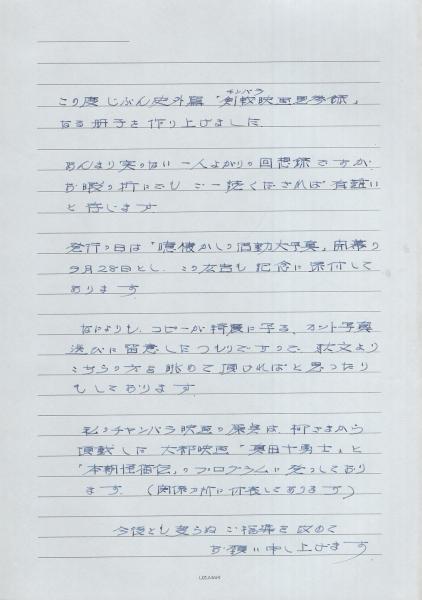 この度じぶん史外篇「剣戟映画思考録」
チャンバラ
なる冊子を作り上げました
あんまり実のない一人よがりの回想録ですが
お暇の折にでもご一読くだされば有難い
と存じます
発行の日は「懐しの活動大写真」開幕の
9月28日とし、この広告も記念に添付して
あります
なによりも、コピーが綺麗に写る、カット写真
選びに留意したつもりですので、駄文より
そちらの方を眺めて頂ければと思ったり
もしております
私のチャンバラ映画の原点は、
から
頂戴した大都映画「真田十勇士」と
「本朝怪猫伝」のプログラムに発しており
ます (関係の所に
してあります)
今後とも変らぬご指導を改めて
お願い申し上げます